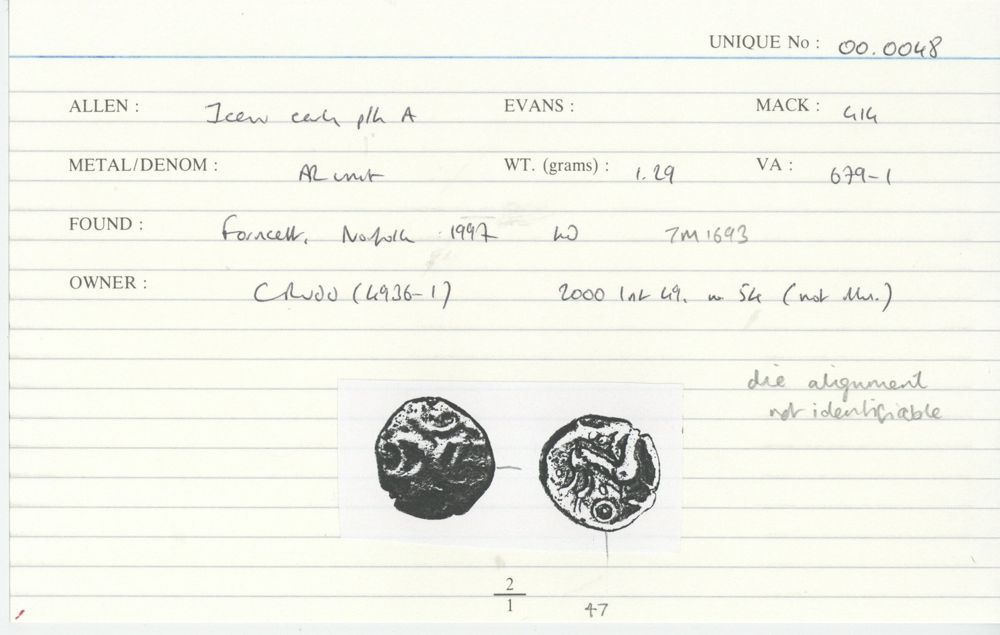 UNIQUE No : 00.0048
ALLEN : Iceni early pl A EVANS : MACK : 414
METAL/DENOM : AR unit WT. (grams) : 1.29 VA : 679-1
FOUND : Forncett, Norfolk 1997 TM1693
OWNER : (4936-1) 2000 49. 54 (not
die alignment
not identifiable
2
1 47